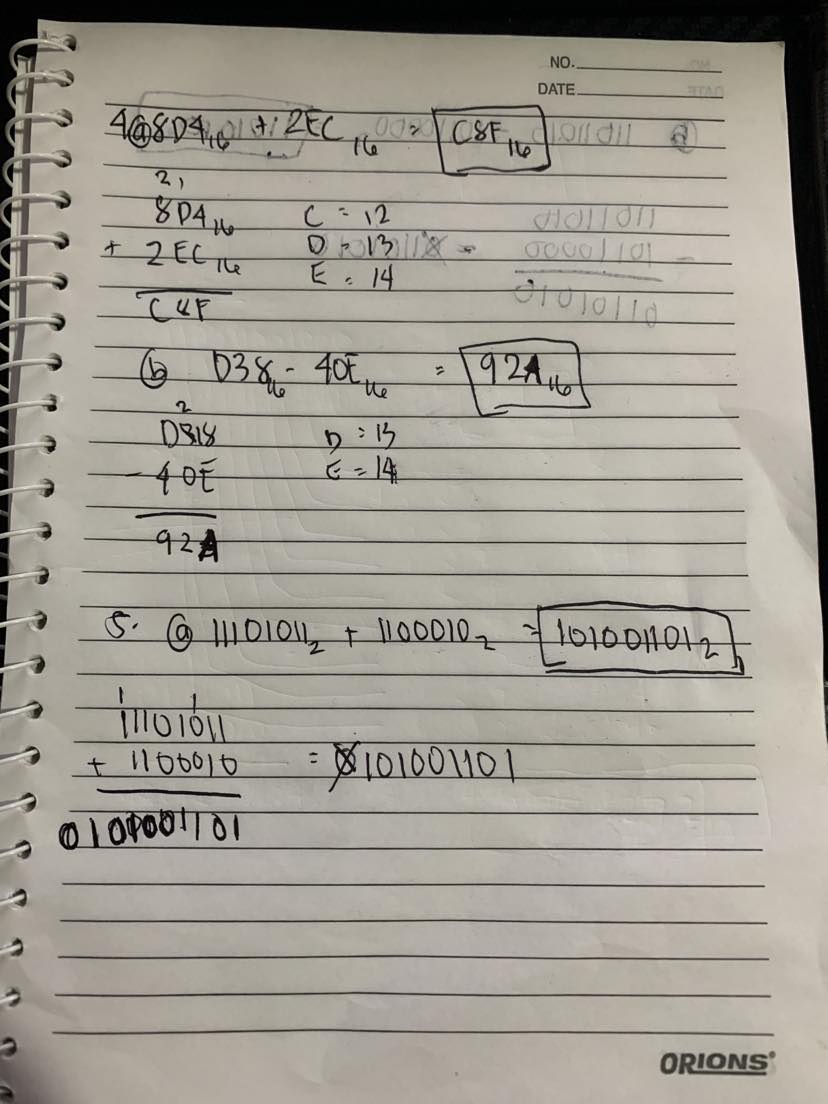 NO.
DATE
4 ⓐ 8D4₁₆ + 2EC₁₆ = C8F₁₆
2 1
8D4₁₆ C = 12
+ 2EC₁₆ D = 13
E = 14
C8F
ⓑ D38₁₆ - 40E₁₆ = 92A₁₆
2
D318 D = 13
- 40E E = 14
92A
5. ⓐ 11101011₂ + 1100010₂ = 101001101₂
1 1
11101011
+ 1100010 = 101001101
0101001101
ORIONS